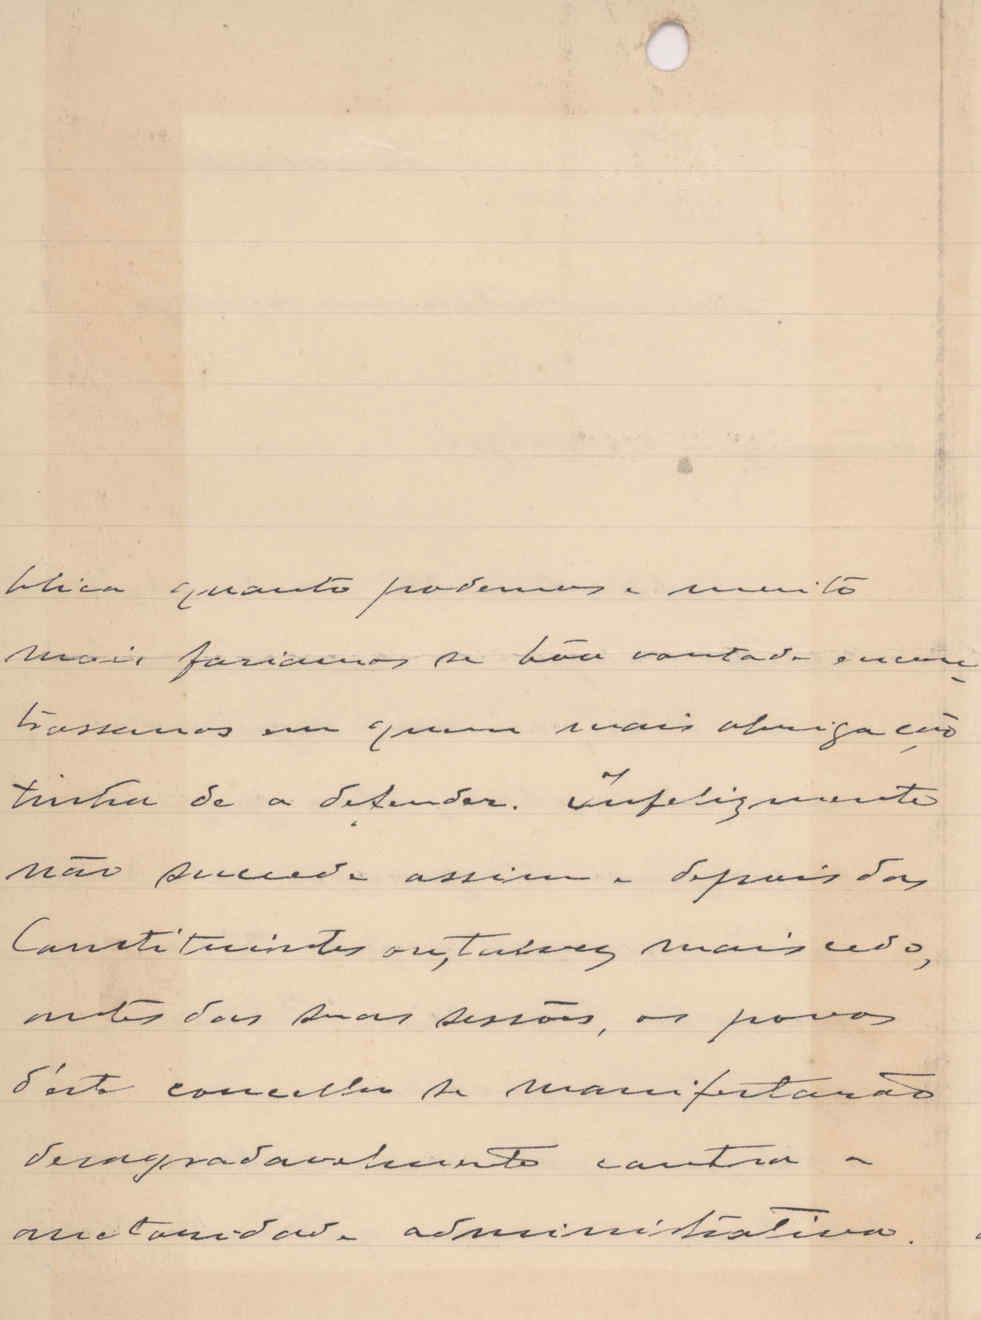 blica quanto podemos e muito
mais fariamos se bôa vontade encon-
trassemos em quem mais obrigação
tinha de a defender. Infelizmente
não succede assim e depois das
Constituintes ou, talvez mais cedo,
antes das suas sessões, os povos
d'este concelho se manifestarão
desagradavelmente contra a
auctoridade administrativa.